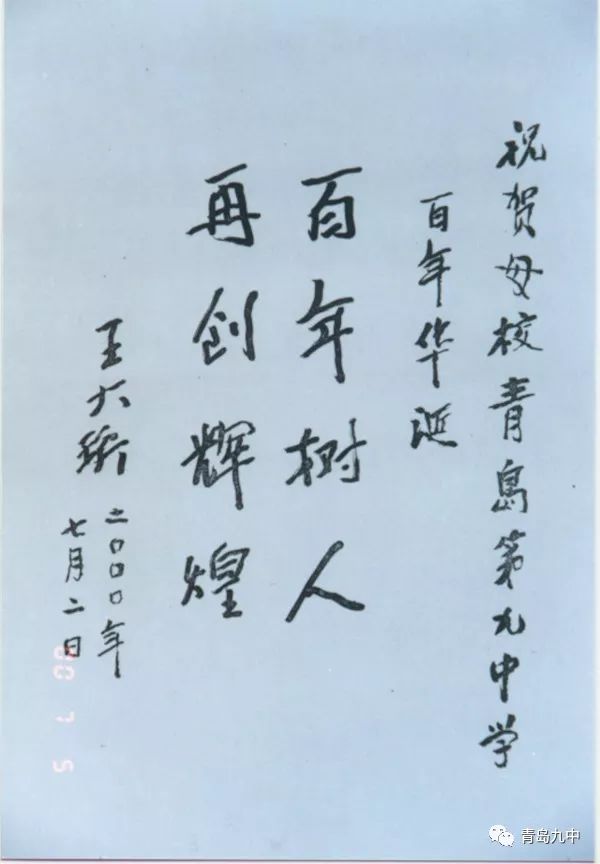 祝贺母校青岛第九中学
百年华诞
百年树人
再创辉煌
王大珩
二〇〇〇年
七月二日
00 7 5
青岛九中